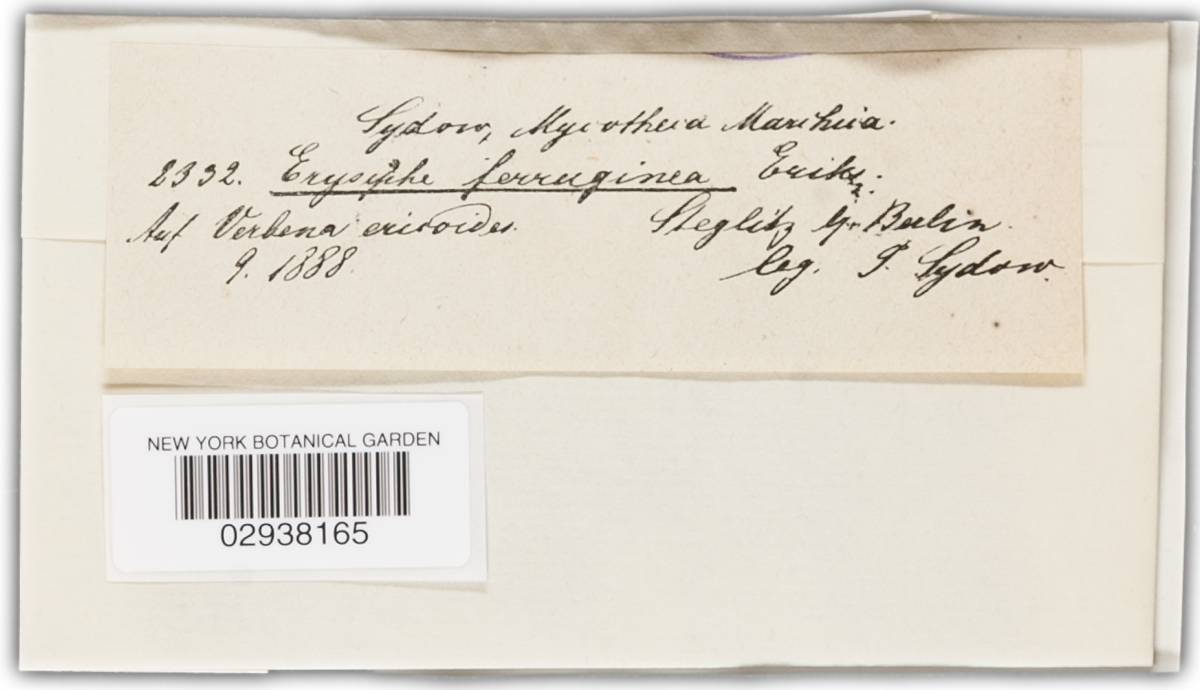 Sydow, Mycotheca Marchica.
2332. Erysiphe ferruginea Eriks.
Auf Verbena ericoides. Steglitz b. Berlin.
9. 1888. leg. P. Sydow.
NEW YORK BOTANICAL GARDEN
02938165